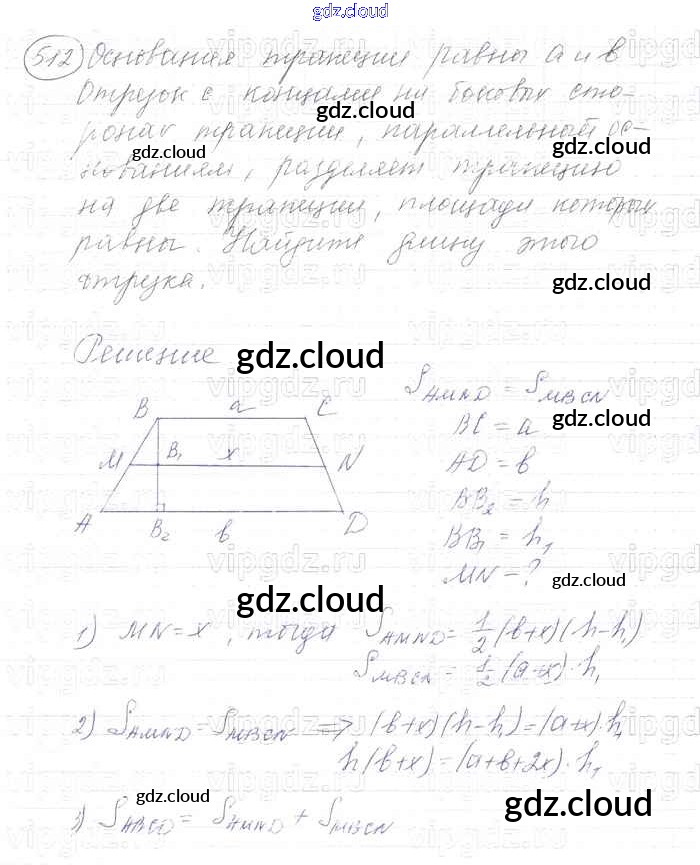 gdz.cloud
512 Основания трапеции равны a и b
Отрезок с концами на боковых сто-
gdz.cloud
ронах трапеции, параллельный ос-
gdz.cloud
нованиям, разделяет трапецию
gdz.cloud
на две трапеции, площади которых
равны. Найдите длину этого
отрезка.
gdz.cloud
Решение
gdz.cloud
S AMND = S MBCN
BC = a
AD = b
BB₂ = h
BB₁ = h₁
MN - ?
B a C
M B₁ x N
A B₂ b D
gdz.cloud
gdz.cloud
gdz.cloud
1) MN = x, тогда S AMND = 1/2 (b+x)(h-h₁)
S MBCN = 1/2 (a-x)·h₁
gdz.cloud
2) S AMND = S MBCN => (b+x)(h-h₁)=(a+x)·h₁
h(b+x)=(a+b+2x)·h₁
gdz.cloud
gdz.cloud
3) S ABCD = S AMND + S MBCN